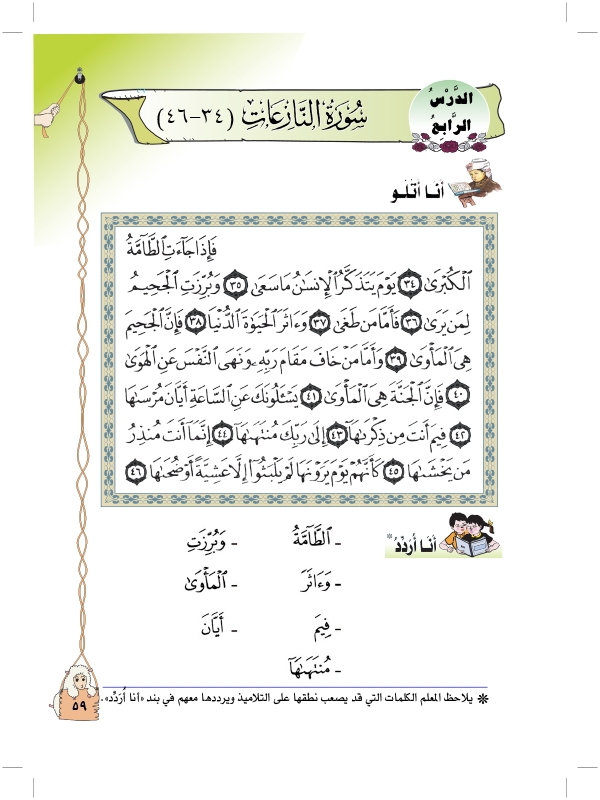 الدَّرْسُ
الرَّابِعُ
سُورَةُ النَّازِعَاتِ (٣٤-٤٦)
أَنَا أَتْلُو
فَإِذَا جَآءَتِ ٱلطَّآمَّةُ
ٱلْكُبْرَىٰ ٣٤ يَوْمَ يَتَذَكَّرُ ٱلْإِنسَٰنُ مَا سَعَىٰ ٣٥ وَبُرِّزَتِ ٱلْجَحِيمُ
لِمَن يَرَىٰ ٣٦ فَأَمَّا مَن طَغَىٰ ٣٧ وَءَاثَرَ ٱلْحَيَوٰةَ ٱلدُّنْيَا ٣٨ فَإِنَّ ٱلْجَحِيمَ
هِىَ ٱلْمَأْوَىٰ ٣٩ وَأَمَّا مَنْ خَافَ مَقَامَ رَبِّهِۦ وَنَهَى ٱلنَّفْسَ عَنِ ٱلْهَوَىٰ
٤٠ فَإِنَّ ٱلْجَنَّةَ هِىَ ٱلْمَأْوَىٰ ٤١ يَسْـَٔلُونَكَ عَنِ ٱلسَّاعَةِ أَيَّانَ مُرْسَىٰهَا
٤٢ فِيمَ أَنتَ مِن ذِكْرَىٰهَآ ٤٣ إِلَىٰ رَبِّكَ مُنتَهَىٰهَآ ٤٤ إِنَّمَآ أَنتَ مُنذِرُ
مَن يَخْشَىٰهَا ٤٥ كَأَنَّهُمْ يَوْمَ يَرَوْنَهَا لَمْ يَلْبَثُوٓا۟ إِلَّا عَشِيَّةً أَوْ ضُحَىٰهَا ٤٦
أَنَا أُرَدِّدُ*
- ٱلطَّآمَّةُ - وَبُرِّزَتِ
- وَءَاثَرَ - ٱلْمَأْوَىٰ
- فِيمَ - أَيَّانَ
- مُنتَهَىٰهَآ
* يلاحظ المعلم الكلمات التي قد يصعب نطقها على التلاميذ ويرددها معهم في بند «أنا أُرَدِّد».
٥٩